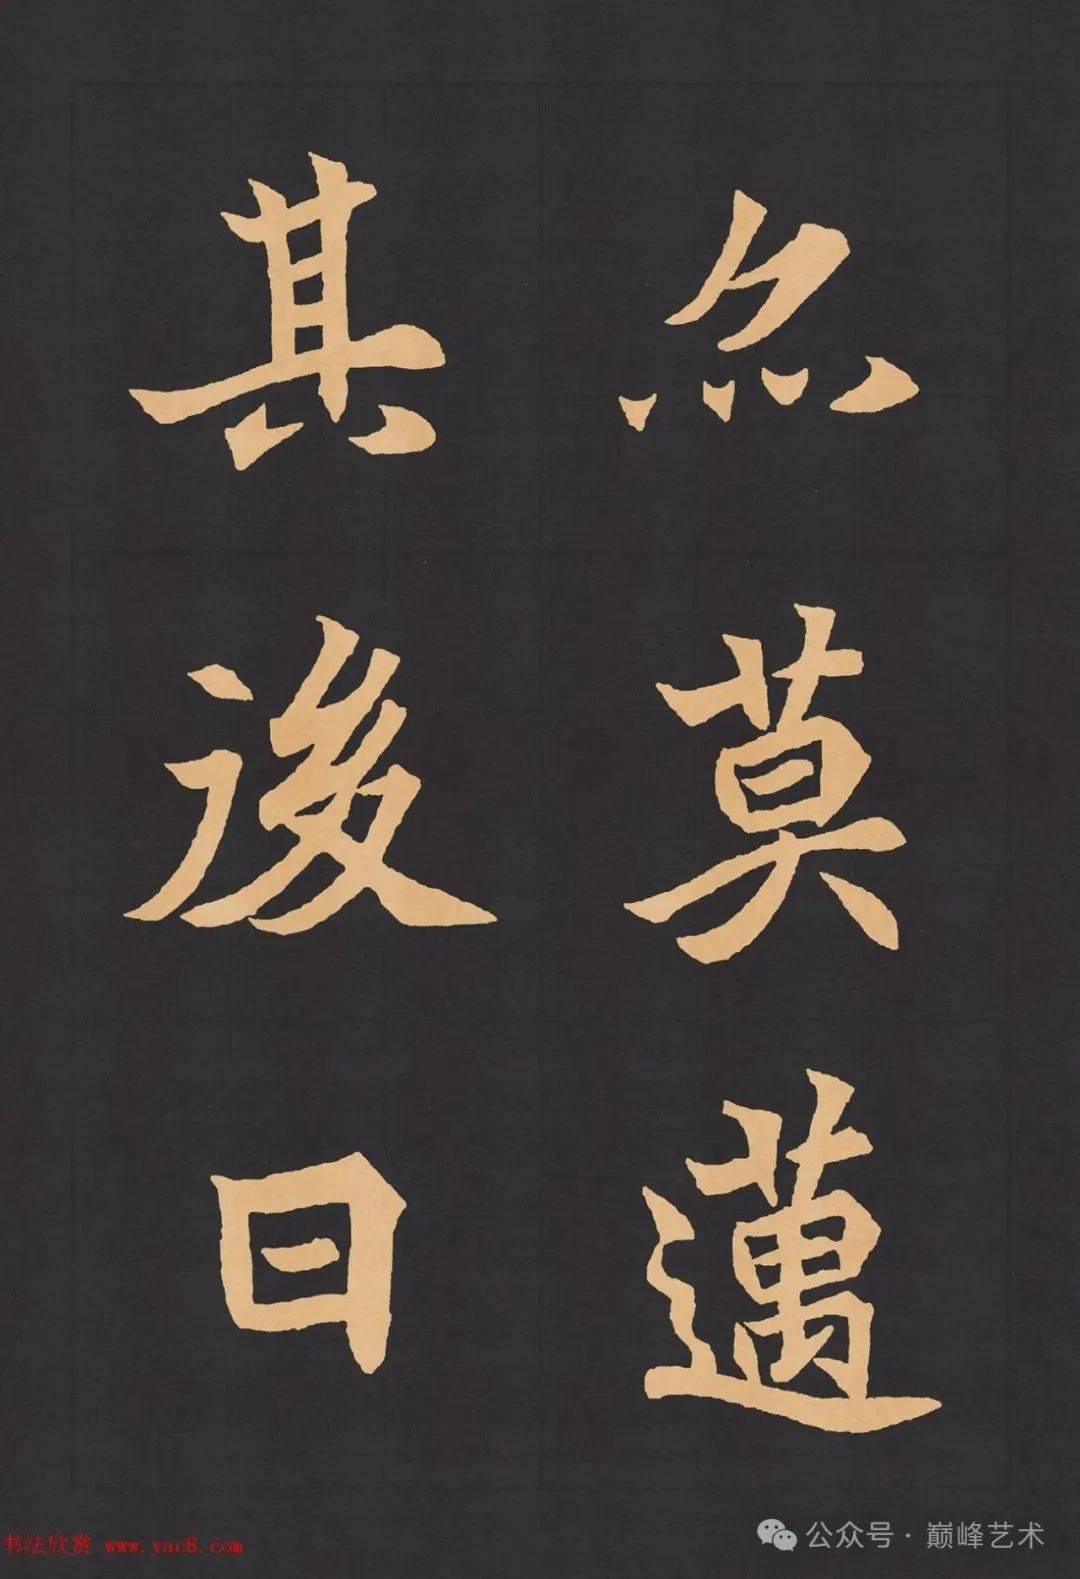 尒莫邁
其後曰
书法欣赏 www.yac8.com
公众号 · 巅峰艺术